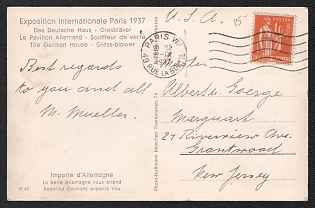 Exposition Internationale Paris 1937
Das Deutsche Haus - Glasbläser
Le Pavillon Allemand - Souffleur de verre
The German House - Glass-blower
Best regards
to you and all
M. Mueller.
Importé d'Allemagne
La Belle Allemagne vous attend
Beautiful Germany expects You
U.S.A.
15
PARIS VII
1937
POSTES
Albert
Marquart
27 Riverview Ave.
Grantwood
New Jersey